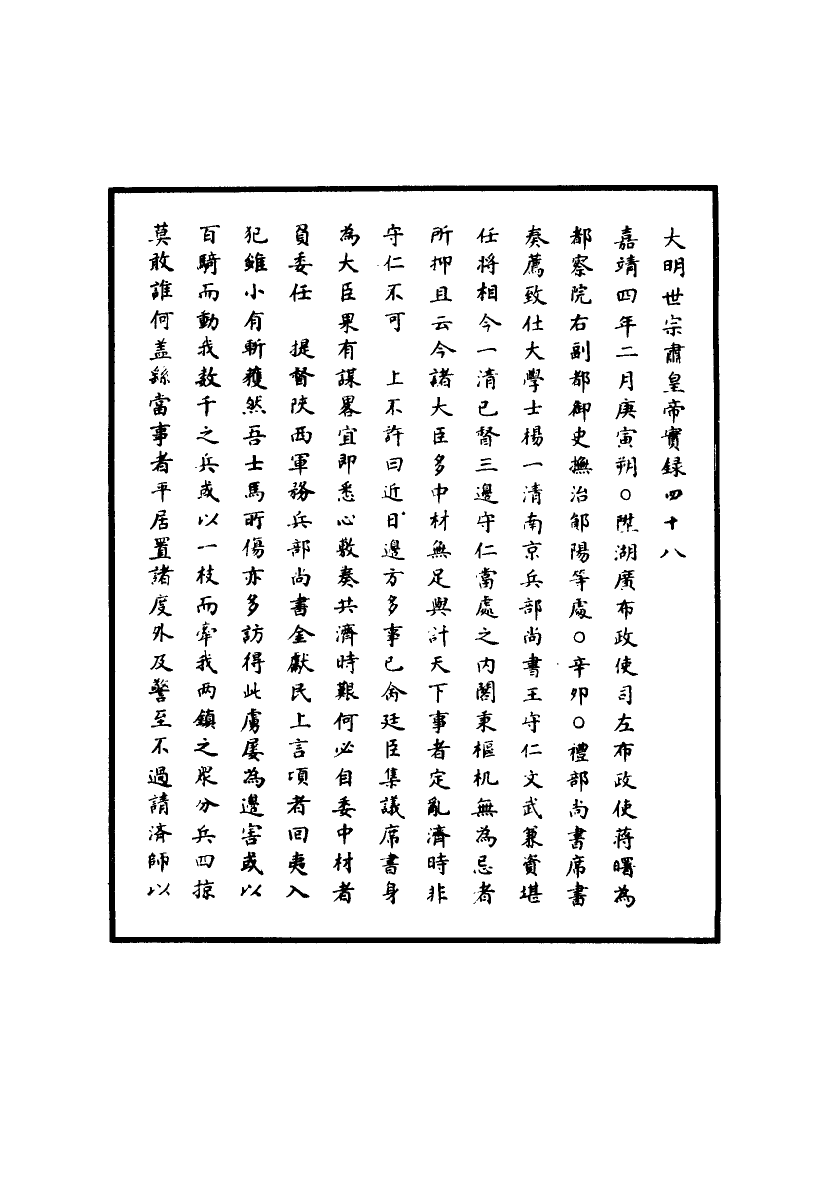 大明世宗肅皇帝實録四十八
嘉靖四年二月庚寅朔○陞湖廣布政使司左布政使蒋曙為
都察院右副都御史撫治鄖陽等處○辛卯○禮部尚書席書
奏薦致仕大學士楊一清南京兵部尚書王守仁文武兼資堪
任将相今一清已督三邊守仁當處之内閣秉樞机無為忌者
所抑且云今諸大臣多中材無足與計天下事者定亂濟時非
守仁不可　上不許曰近日邊方多事已命廷臣集議席書身
為大臣果有謀畧宜即悉心敷奏共濟時艱何必自委中材者
員委任　提督陕西軍務兵部尚書金獻民上言項者回夷入
犯雖小有斬獲然吾士馬所傷亦多訪得此虜屡為邊害或以
百騎而動我数千之兵或以一枝而牽我两鎮之眾分兵四掠
莫敢誰何盖繇當事者平居置諸度外及警至不過請済師以